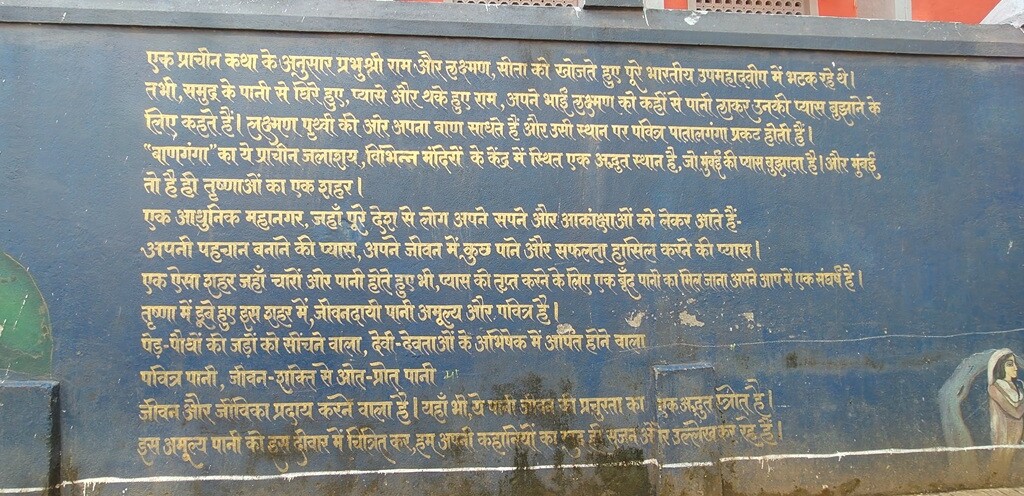 एक प्राचीन कथा के अनुसार प्रभुश्री राम और लक्ष्मण, सीता को खोजते हुए पूरे भारतीय उपमहाद्वीप में भटक रहे थे।
तभी, समुद्र के पानी से घिरे हुए, प्यासे और थके हुए राम, अपने भाई लक्ष्मण को कहीं से पानी लाकर उनकी प्यास बुझाने के
लिए कहते हैं। लक्ष्मण पृथ्वी की ओर अपना बाण साधते हैं और उसी स्थान पर पवित्र पातालगंगा प्रकट होती हैं।
"बाणगंगा" का ये प्राचीन जलाशय, विभिन्न मंदिरों के केंद्र में स्थित एक अद्भुत स्थान है, जो मुंबई की प्यास बुझाता है। और मुंबई
तो है ही तृष्णाओं का एक शहर।
एक आधुनिक महानगर, जहाँ पूरे देश से लोग अपने सपने और आकांक्षाओं को लेकर आते हैं-
अपनी पहचान बनाने की प्यास, अपने जीवन में कुछ पाने और सफलता हासिल करने की प्यास।
एक ऐसा शहर जहाँ चारों ओर पानी होते हुए भी, प्यास को तृप्त करने के लिए एक बूँद पानी का मिल जाना अपने आप में एक संघर्ष है।
तृष्णा में डूबे हुए इस शहर में, जीवनदायी पानी अमूल्य और पवित्र है।
पेड़-पौधों की जड़ों को सींचने वाला, देवी-देवताओं के अभिषेक में अर्पित होने वाला
पवित्र पानी, जीवन-शक्ति से ओत-प्रोत पानी
जीवन और जीविका प्रदाय करने वाला है। यहाँ भी, ये पानी जीवन की प्रचुरता का एक अद्भुत स्त्रोत है।
इस अमूल्य पानी को इस दीवार में चित्रित कर, हम अपनी कहानियों का सृजन और उल्लेख कर रहे हैं।